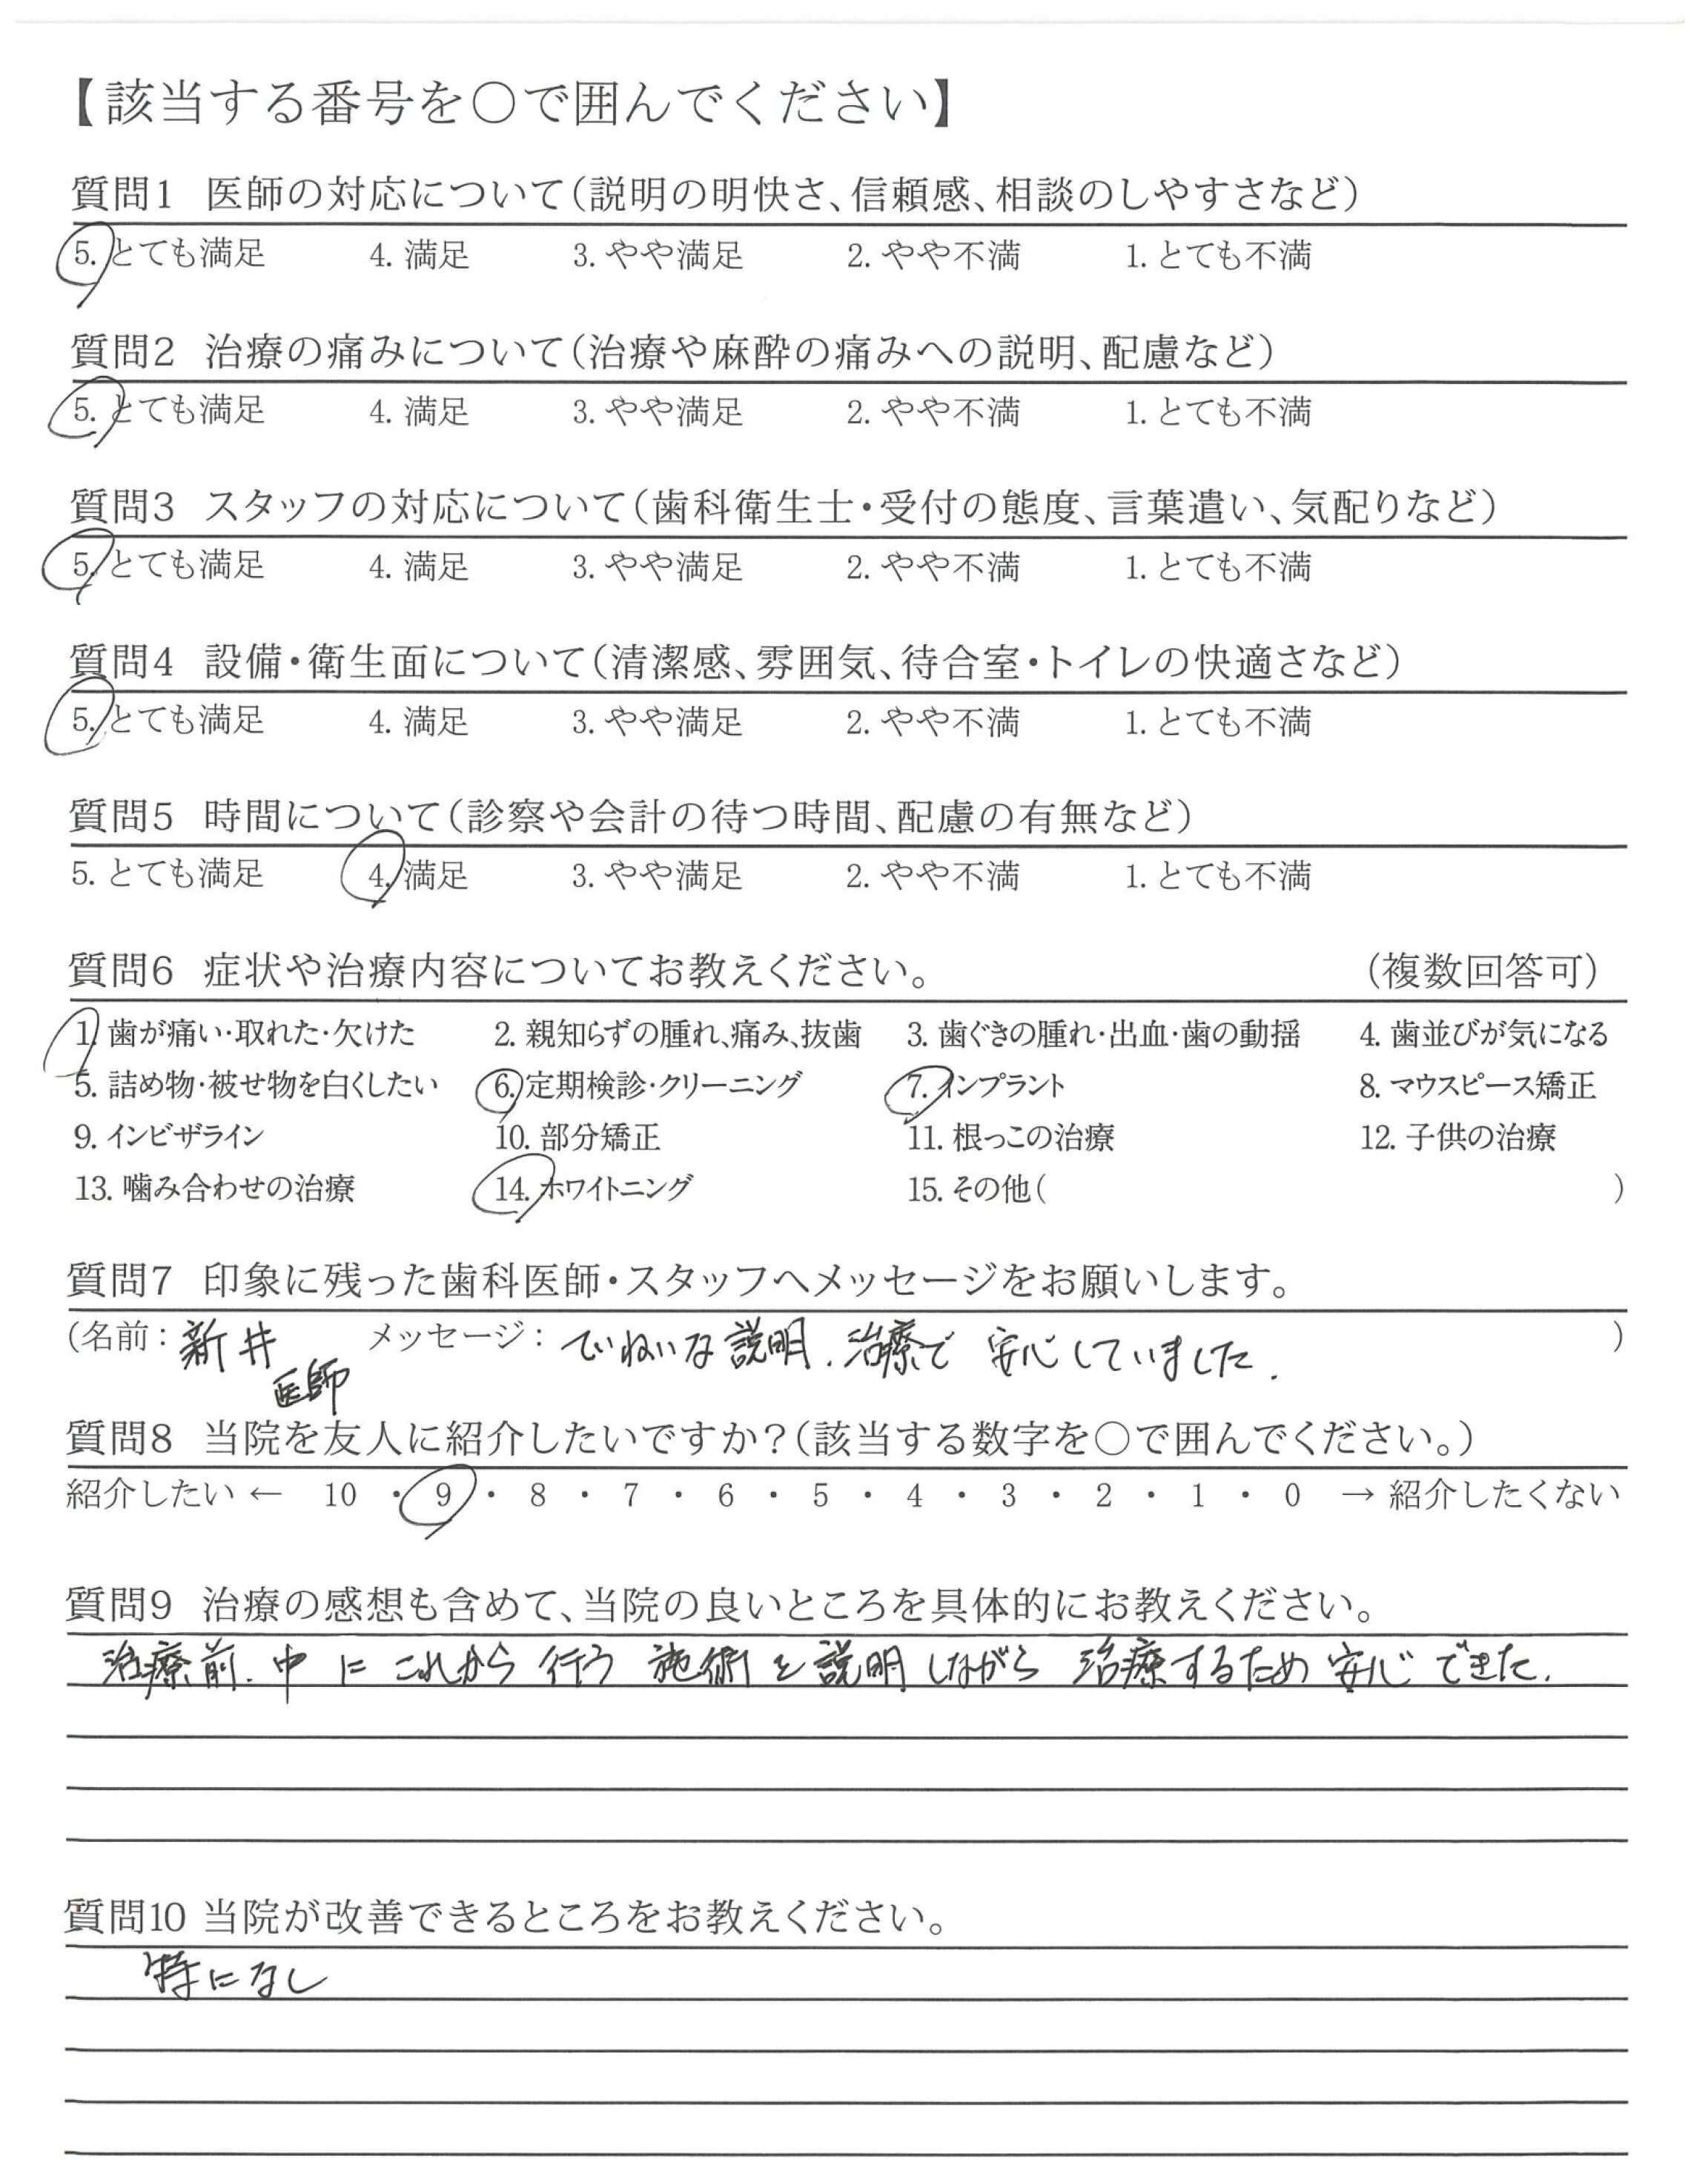 【該当する番号を○で囲んでください】
質問1 医師の対応について(説明の明快さ、信頼感、相談のしやすさなど)
5. とても満足 4. 満足 3. やや満足 2. やや不満 1. とても不満
質問2 治療の痛みについて(治療や麻酔の痛みへの説明、配慮など)
5. とても満足 4. 満足 3. やや満足 2. やや不満 1. とても不満
質問3 スタッフの対応について(歯科衛生士・受付の態度、言葉遣い、気配りなど)
5. とても満足 4. 満足 3. やや満足 2. やや不満 1. とても不満
質問4 設備・衛生面について(清潔感、雰囲気、待合室・トイレの快適さなど)
5. とても満足 4. 満足 3. やや満足 2. やや不満 1. とても不満
質問5 時間について(診察や会計の待つ時間、配慮の有無など)
5. とても満足 4. 満足 3. やや満足 2. やや不満 1. とても不満
質問6 症状や治療内容についてお教えください。 (複数回答可)
1. 歯が痛い・取れた・欠けた 2. 親知らずの腫れ、痛み、抜歯 3. 歯ぐきの腫れ・出血・歯の動揺 4. 歯並びが気になる
5. 詰め物・被せ物を白くしたい 6. 定期検診・クリーニング 7. インプラント 8. マウスピース矯正
9. インビザライン 10. 部分矯正 11. 根っこの治療 12. 子供の治療
13. 噛み合わせの治療 14. ホワイトニング 15. その他( )
質問7 印象に残った歯科医師・スタッフへメッセージをお願いします。
(名前: 新井 メッセージ: ていねいな説明、治療で 安心していました. )
医師
質問8 当院を友人に紹介したいですか?(該当する数字を○で囲んでください。)
紹介したい ← 10 ・ 9 ・ 8 ・ 7 ・ 6 ・ 5 ・ 4 ・ 3 ・ 2 ・ 1 ・ 0 → 紹介したくない
質問9 治療の感想も含めて、当院の良いところを具体的にお教えください。
治療前、中 に これから 行う 施術 を 説明 しながら 治療するため 安心 できた.
質問10 当院が改善できるところをお教えください。
特になし